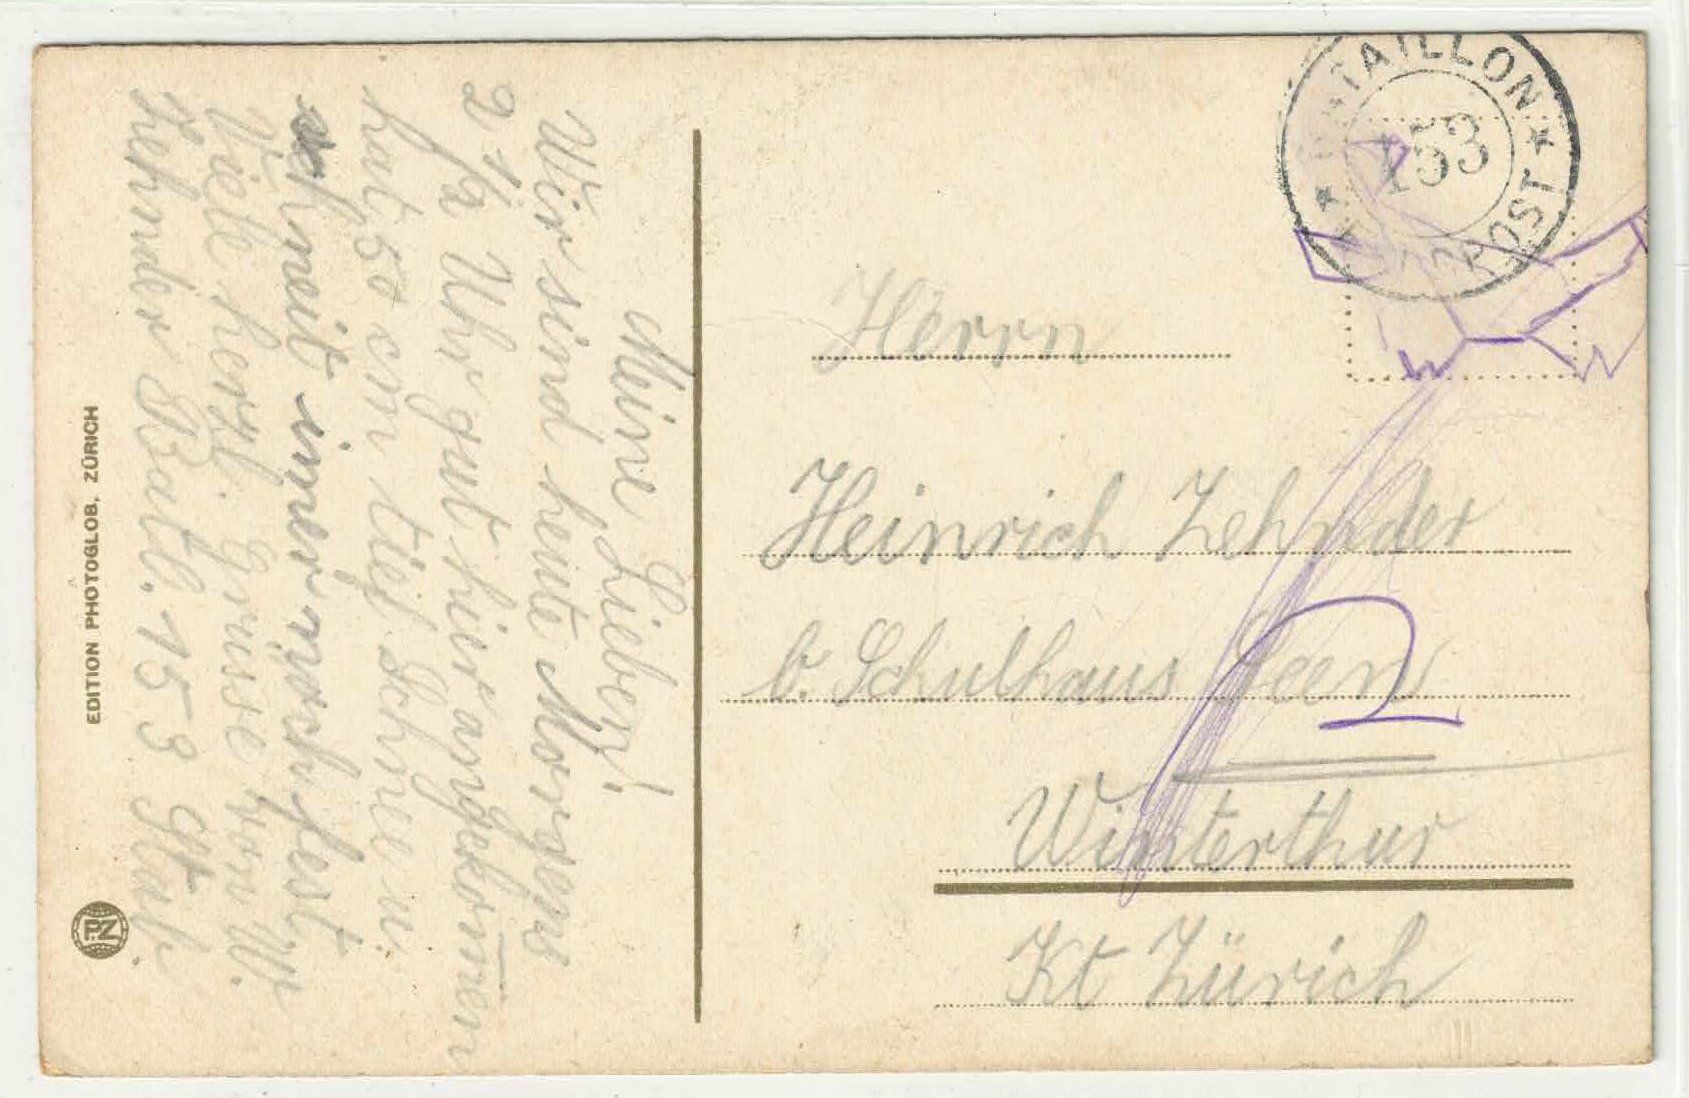 Meine Lieben!
Wir sind heute Morgens
2 1/2 Uhr gut hier angekom̅en
hat 50 cm tief Schnee u.
schneit im̅er noch fest
Viele herzl. Grüsse von W.
Zehnder Batl. 153 Stab.
EDITION PHOTOGLOB, ZÜRICH
PZ
BATAILLON
153
FELDPOST
Herrn
Heinrich Zehnder
b. Schulhaus Seen
2
Winterthur
Kt Zürich